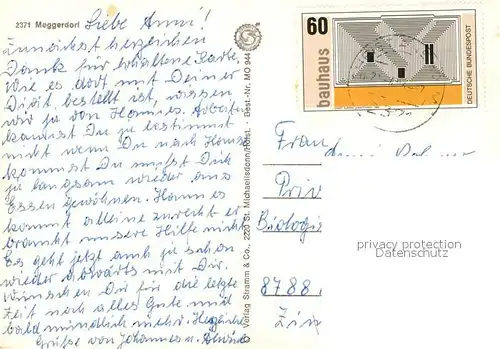 2371 Meggerdorf
Liebe Anni!
Zunächst herzlichen
Dank für erhaltene Karte,
Wie es dort mit Deiner
Diät bestellt ist, wissen
wir ja von Hannes. Arbeiten
kannst Du ja bestimmt
nicht wenn Du nach Hause
kommst Du mußt Dich
ja langsam wieder ans
Essen gewöhnen. Hannes
kommt alleine zurecht er
braucht unsere Hilfe nicht
Es geht jetzt auch ja schon
wieder abwärts mit Dir.
Wünschen Dir für die letzte
Zeit noch alles Gute und
bald mündlich mehr. Herzliche
Grüße von Johannes u.
Verlag Stramm & Co., 2220 St. Michaelisdonn/Holst. · Best.-Nr. MO 944
60
bauhaus
DEUTSCHE BUNDESPOST
Frau
Priv
Biologie
8788
privacy protection
Datenschutz